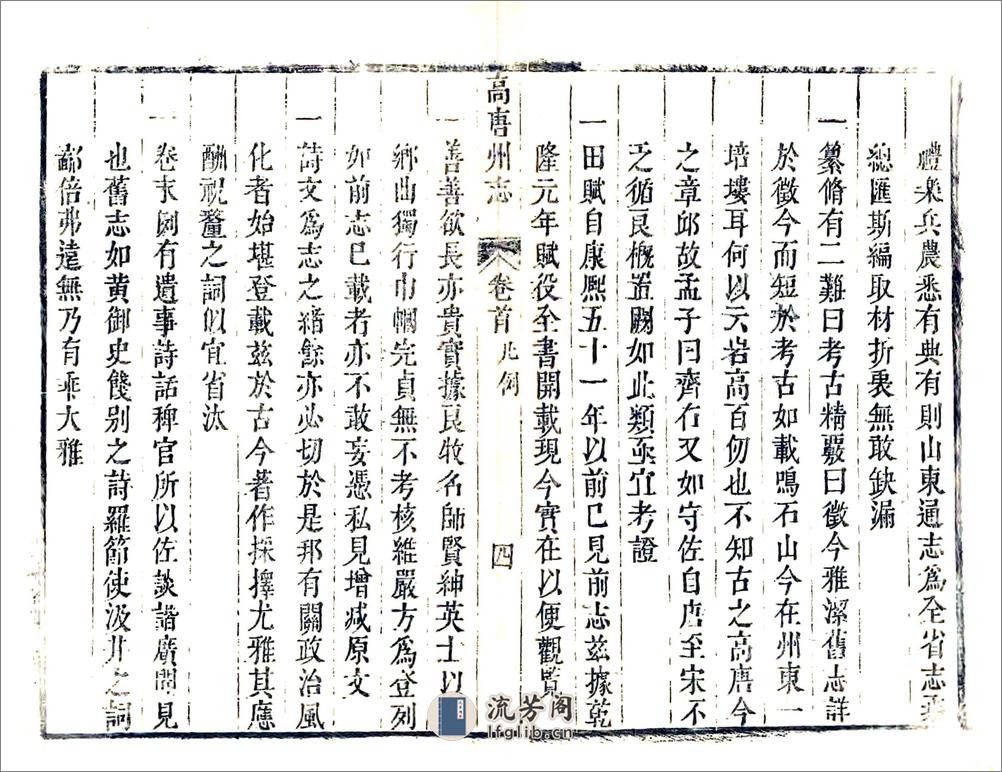 禮樂兵農悉有典有則山東通志爲全省志乘
總匯斯編取材折衷無敢缺漏
一纂脩有二難曰考古精覈曰徵今雅潔舊志詳
於徵今而短於考古如載鳴石山今在州東一
培塿耳何以云岩高百仞也不知古之高唐今
之章邱故孟子曰齊右又如守佐自唐至宋不
乏循良概置闕如此類亟宜考證
一田賦自康熙五十一年以前已見前志茲據乾
隆元年賦役全書開載現今實在以便觀覽
高唐州志 卷首 凡例 四
一善善欲長亦貴實據良牧名師賢紳英士以
鄉曲獨行巾幗完貞無不考核維嚴方爲登列
如前志已載者亦不敢妄憑私見增減原文
一詩文爲志之緒餘亦必切於是邦有關政治風
化者始堪登載茲於古今著作採擇尤雅其應
酬祝釐之詞似宜省汰
一卷末閎有遺事詩話稗官所以佐談諧廣聞見
也舊志如黃御史餞别之詩羅節使汲井之詞
鄙倍弗遠無乃有乖大雅
流芳阁
lfglib.cn